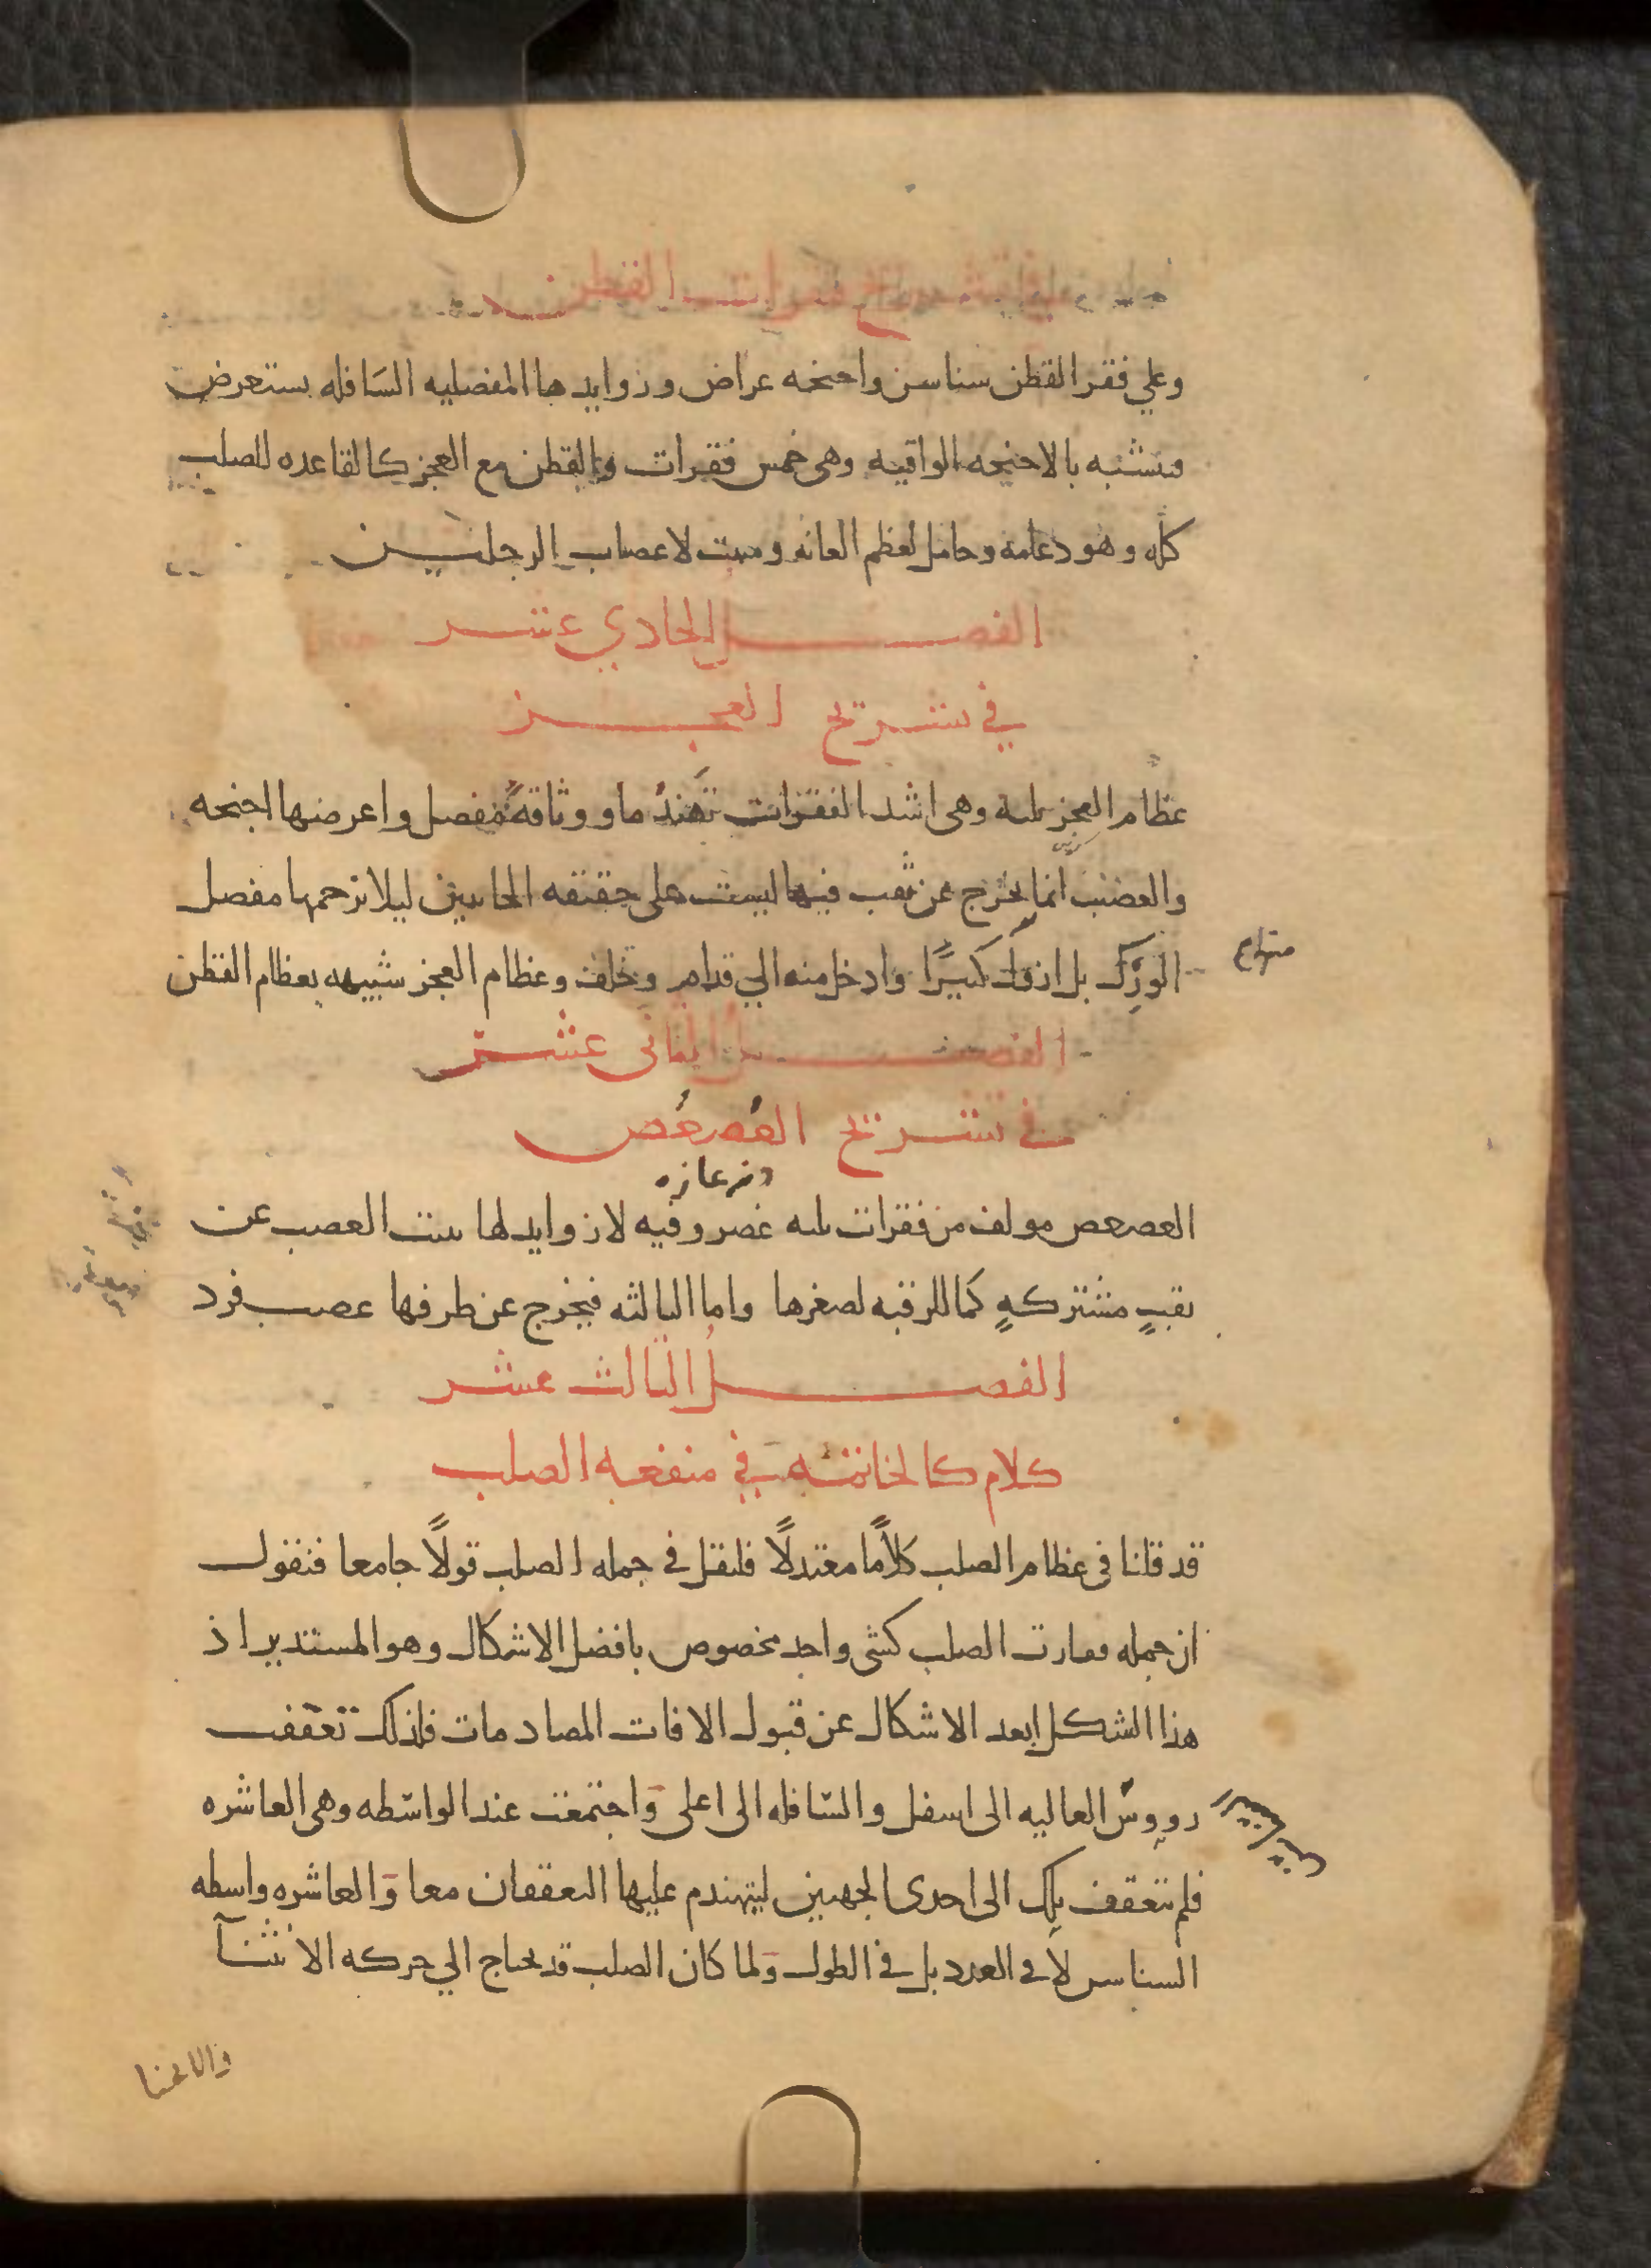 في تشريح فقرات القطن
وعلي فقر القطن سناسن واجنحه عراض وزوايدها المفصليه السَافله يستعرض
فيتشبه بالاجنحه الواقيه وهى خمس فقرات والقطن مع العجز كالقاعده للصلب
كله وهو دعامة وحامل لعظم العانه ومنبت لاعصاب الرجلين
الفصل الحادي عشر
في تشريح العجز
عظام العجز ثلثة وهى اشد الفقرات تهندما ووثاقةً مفصل واعرضها اجنحه
والعصب انما يخرج عن ثقب فيها ليست على حقيقه الجانبين ليلا تزحمها مفصل
الوَرِك بل ازول كثيرًا وادخل منه الي قدام وخلف وعظام العجز شبيهه بعظام القطن
الفصل الثانى عشر
فى تشريح العُصعُص
العصعص مولف من فقرات ثلثه غضروفيه لا زوايد لها ينبت العصب عن
ثقبٍ مشتركهٍ كما للرقبه لصغرها واما الثالثه فيخرج عن طرفها عصب فرد
الفصل الثالث عشر
كلام كالخاتمه في منفعه الصلب
قد قلنا فى عظام الصلب كلامًا معتدلًا فلنقل فى جمله الصلب قولًا جامعا فنقول
ان جمله فقارت الصلب كشى واحد مخصوص بافضل الاشكال وهو المستدير اذ
هذا الشكل ابعد الاشكال عن قبول الافات المصادمات فلذلك تعقفت
رووس العاليه الى اسفل والسافله الى اعلى واجتمعت عند الواسطه وهى العاشره
فلم تتعقف تلك الى احدى الجهتين ليتهندم عليها التعقفان معا والعاشره واسطه
السناسن لا فى العدد بل فى الطول ولما كان الصلب قد يحتاج الي حركه الانثنآ
والانحنا